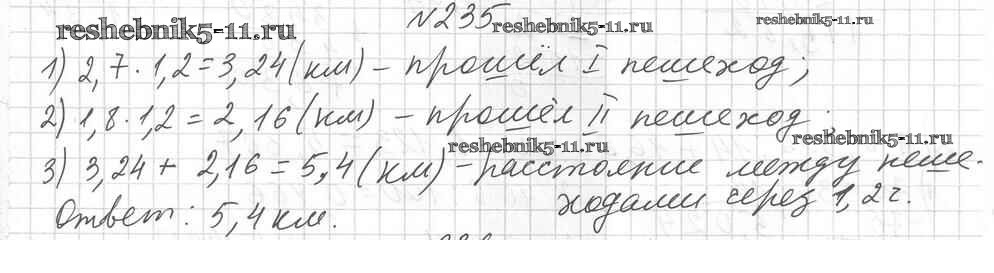 №235
reshebnik5-11.ru reshebnik5-11.ru reshebnik5-11.ru
1) 2,7 · 1,2 = 3,24 (км) – прошёл I пешеход;
2) 1,8 · 1,2 = 2,16 (км) – прошёл II пешеход;
reshebnik5-11.ru reshebnik5-11.ru
3) 3,24 + 2,16 = 5,4 (км) – расстояние между пеше-
ходами через 1,2 ч.
Ответ: 5,4 км.